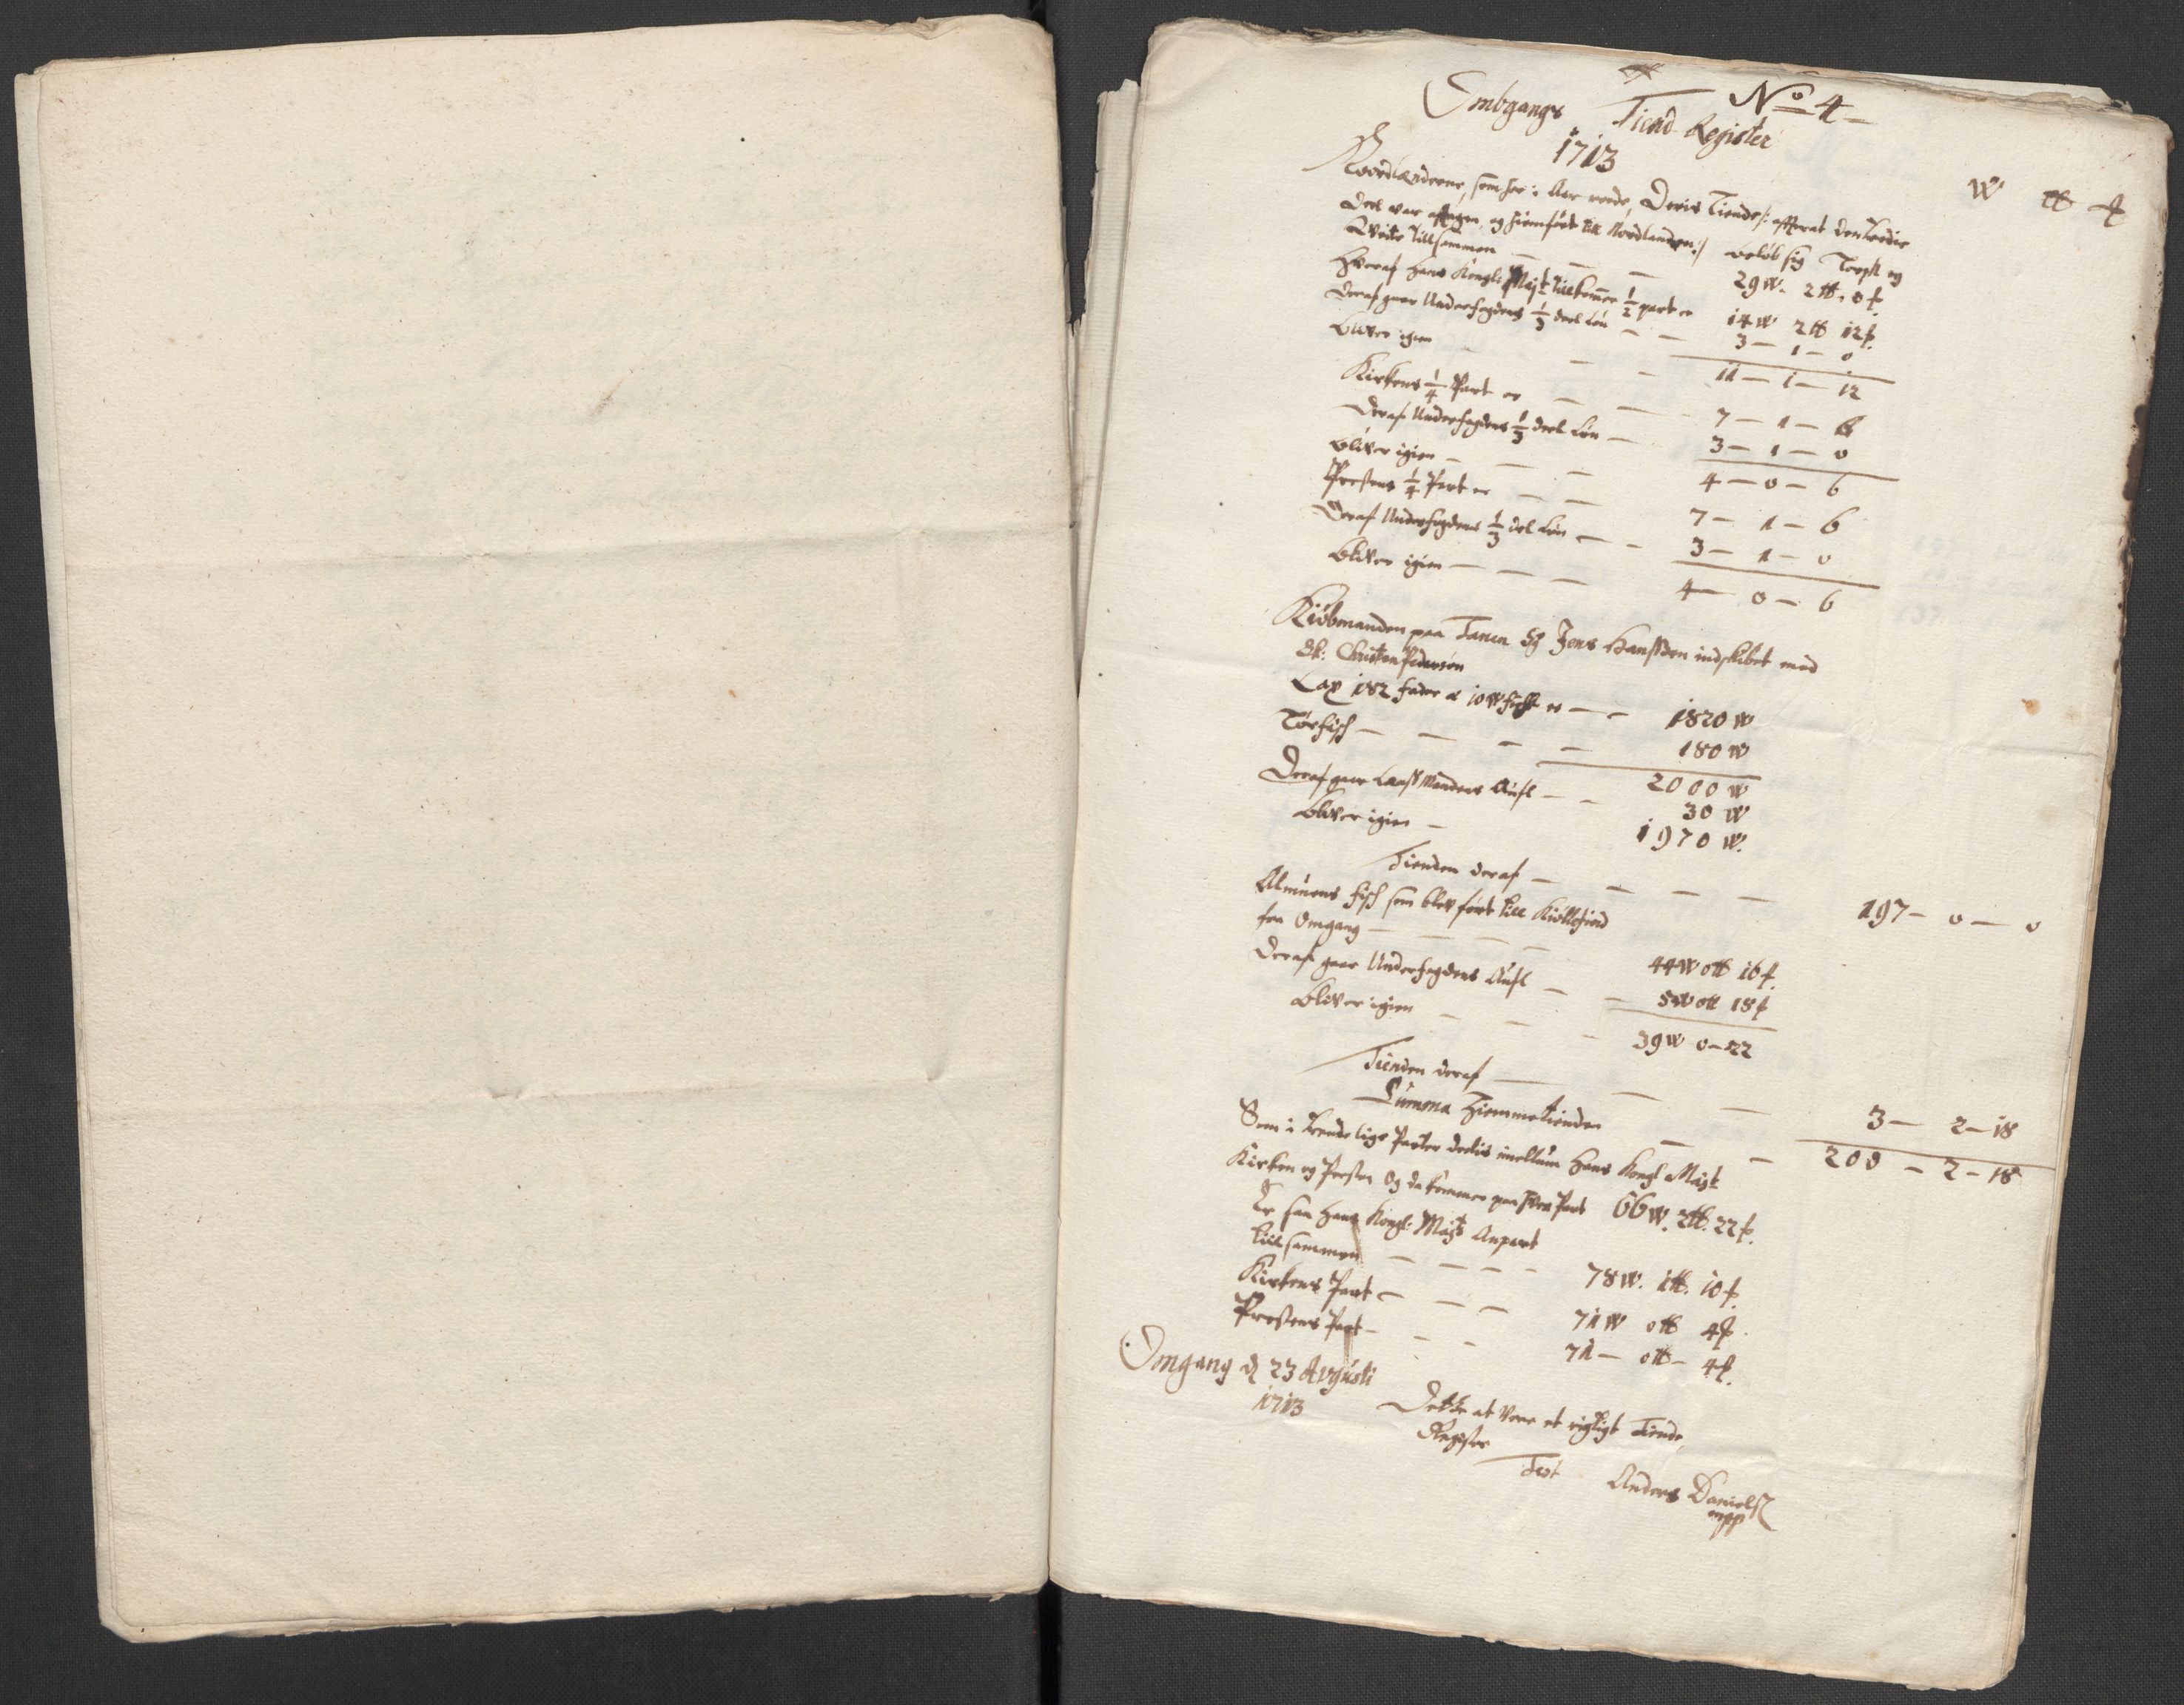 No 4
Ombgangs Tiend Register
1713
W ℔ ƒ
Nordlænderne, som her i Aar roede, Deris Tiende /: effterat den tredie
Deel var afftagen og hiemført till Nordlanden :/ beløb sig Torsk og
Qveite tillsammen — — — 29 W. 2 ℔. 0 ƒ.
Hvoraf Hans Kongl: Mayt: tilkommer 1/2 part er 14 W 2 ℔ 12 ƒ.
Deraf gaar Underfogdens 1/3 deel Løn — — 3 — 1 — 0
Bliver igien — — — 11 — 1 — 12
Kirkens 1/4 Part er — — 7 — 1 — 6
Deraf Underfogdens 1/3 deel Løn — 3 — 1 — 0
Bliver igien — — — 4 — 0 — 6
Præstens 1/4 Part er — — 7 — 1 — 6
Deraf Underfogdens 1/3 del Løn — — 3 — 1 — 0
Bliver igien — — — — 4 — 0 — 6
Kiøbmanden paa Tanen Sr Jens Hanssøn indskibet med
Sk: Christen Pedersøn
Lax 182 fader a 10 W fisk er — — 1820 W
Tørfisch — — — — 180 W
2000 W
Deraf gaar Landssmandens — — 30 W
Bliver igien — 1970 W.
Tienden deraf — — — — 197 — 0 — 0
Almuens fisch som blev ført till Kiøllefiord
fra Omgang — — — — 44 W 0 ℔ 16 ƒ.
Deraf gaar Underfogdens — — 5 W 0 ℔ 18 ƒ
Bliver igien — — — 39 W 0 — 22
Tienden deraf — — — 3 — 2 — 18
Summa Hiemmetienden — — 200 — 2 — 18
Som i trende lige Parter deelis imellum Hans Kongl Mayt
Kirken og Præsten Og da kommer paa hver Part 66 W. 2 ℔. 22 ƒ.
Er saa Hans Kongl: Mayts Anpart
tillsammen — — — — 78 W. 1 ℔. 10 ƒ.
Kirkens Part — — — 71 W 0 ℔ 4 ƒ.
Præstens Part — — — 71 — 0 ℔ — 4 ƒ.
Omgang d 23 Avgusti
1713
Dette at være et rigtigt Tiende
Register
Test Anders Daniels
mpp